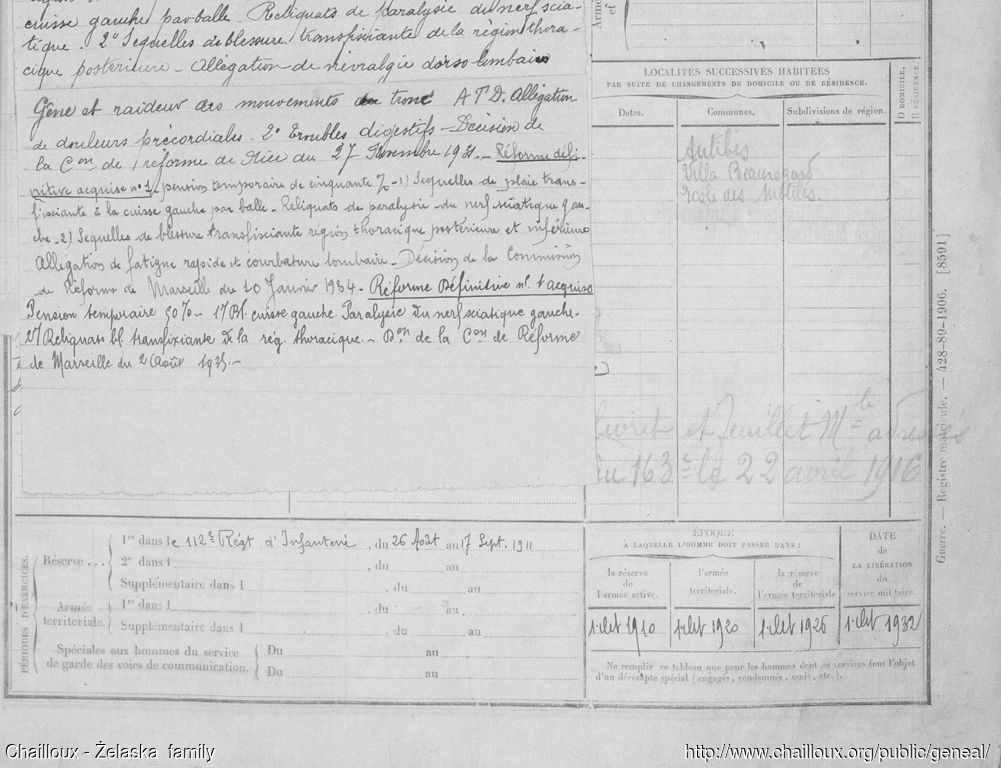 cuisse gauche par balle. Reliquats de paralysie du nerf scia-
tique. 2° Sequelles de blessure transfixiante de la région thora-
cique postérieure - Allégation de nevralgie dorso lombaire
Gêne et raideur des mouvements du tronc A.T.D. Allégation
de douleurs précordiales. 2° Troubles digestifs - Décision de
la Con de réforme de Nice du 27 Novembre 1931. - Réforme défi-
nitive acquise n° 1, pension temporaire de cinquante % - 1) Sequelles de plaie trans-
fisciante à la cuisse gauche par balle - Reliquats de paralysie du nerf sciatique gau
che - 2) Sequelles de blessure transfisciante région thoracique postérieure et inférieure
Allegation de fatigue rapide et courbature lombaire - Décision de la Commission
de Réforme de Marseille du 10 Janvier 1934. - Réforme Définitive n° 1 acquise
Pension temporaire 50% - 1°/ Bl. cuisse gauche. Paralysie du nerf sciatique gauche.
2°/ Reliquats bl. transfixiante de la rég. thoracique. - Don de la Con de Réforme
de Marseille du 2 Août
Armé
et
LOCALITÉS SUCCESSIVES HABITÉES
PAR SUITE DE CHANGEMENTS DE DOMICILE OU DE RÉSIDENCE.
Dates.
Communes.
Subdivisions de région.
D DOMICILE.
R RÉSIDENCE
Antibes
Villa Beauregard
Ecole des
livret et feuillet Mle adressés
au 163e le 22 avril 1916
Guerre. — Registre matricule. — 428-89-1906. [8591]
PÉRIODES D'EXERCICES.
Réserve ...
1re dans le 112e Régt d'Infanterie, du 26 Août au 17 Sept. 1911
2e dans l , du au
Supplémentaire dans l , du au
Armée territoriale.
1re dans l , du au
Supplémentaire dans l , du au
Spéciales aux hommes du service
de garde des voies de communication.
Du au
Du au
ÉPOQUE
À LAQUELLE L'HOMME DOIT PASSER DANS :
la réserve
de
l'armée active.
l'armée
territoriale.
la réserve
de
l'armée territoriale
DATE
de
LA LIBÉRATION
du
service militaire.
1er Oct 1910
1er Oct 1920
1er Oct 1926
1er Oct 1932
Ne remplir ce tableau que pour les hommes dont les services font l'objet
d'un décompte spécial (engagés, condamnés, omis, etc.).
Chailloux - Želaska family
http://www.chailloux.org/public/geneal/